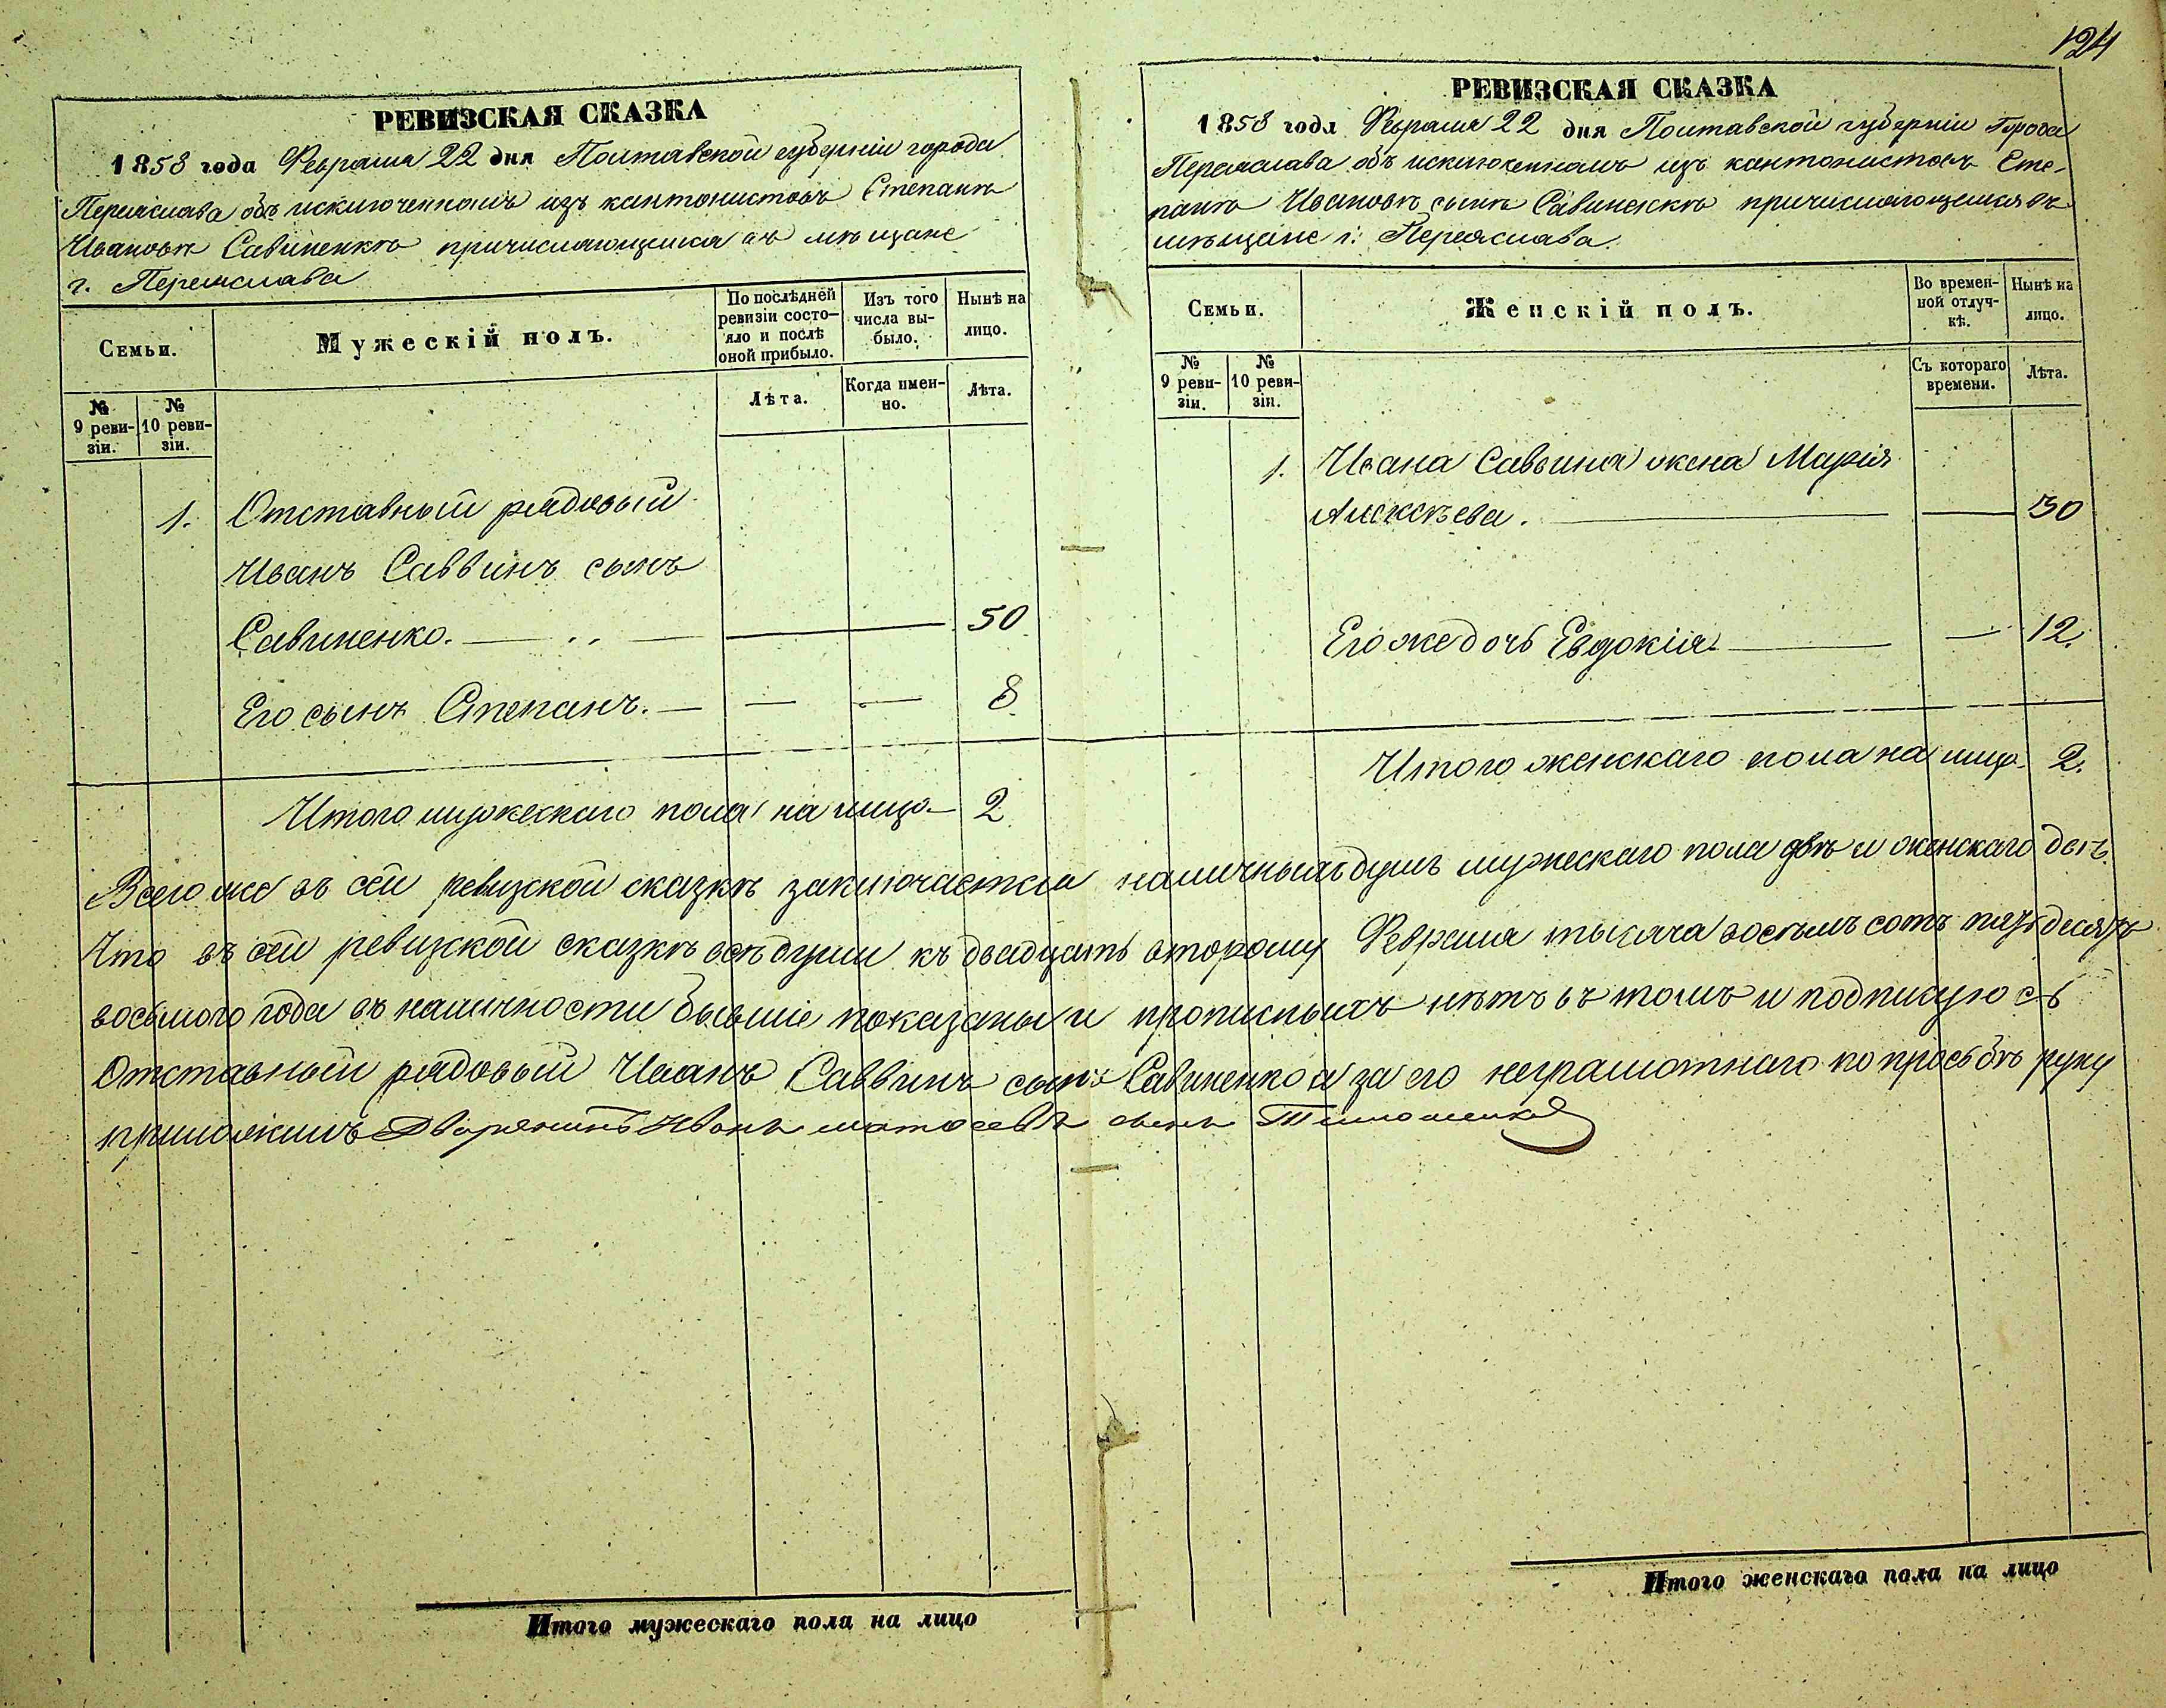 124
РЕВИЗСКАЯ СКАЗКА
1858 года Февраля 22 дня Полтавской губерніи города
Переяслава объ исключенномъ изъ кантонистовъ Степанѣ
Ивановѣ Савиненкѣ причисляющемся въ мѣщане
г. Переяслава
Семьи.
Мужескій полъ.
По послѣдней ревизіи состояло и послѣ оной прибыло.
Изъ того числа выбыло.
Нынѣ на лицо.
№ 9 ревизіи.
№ 10 ревизіи.
Лѣта.
Когда именно.
Лѣта.
1. Отставный рядовый
Иванъ Саввинъ сынъ
Савиненко. — 50
Его сынъ Степанъ. — 8
Итого мужескаго пола на лицо — 2
РЕВИЗСКАЯ СКАЗКА
1858 года Февраля 22 дня Полтавской губерніи Города
Переяслава объ исключенномъ изъ кантонистовъ Сте-
панѣ Ивановѣ сынѣ Савиненкѣ причисляющемся въ
мѣщане г. Переяслава.
Семьи.
Женскій полъ.
Во временной отлучкѣ.
Нынѣ на лицо.
№ 9 ревизіи.
№ 10 ревизіи.
Съ котораго времени.
Лѣта.
1. Ивана Саввина жена Марія
Алексѣева. — 50
Его же дочь Евдокія — 12.
Итого женскаго пола на лицо 2.
Всего же въ сей ревизской сказкѣ заключается наличныхъ душъ мужескаго пола двѣ и женскаго двѣ.
Что въ сей ревизской сказкѣ всѣ души къ двадцать второму Февраля тысяча восемьсотъ пятьдесятъ
восьмого года въ наличности бывшіе показаны и прописныхъ нѣтъ въ томъ и подписуюсь
Отставный рядовый Иванъ Саввинъ сынъ Савиненко а за его неграмотнаго по просьбѣ руку
приложилъ Дворянинъ Иванъ сынъ
Итого мужескаго пола на лицо
Итого женскаго пола на лицо